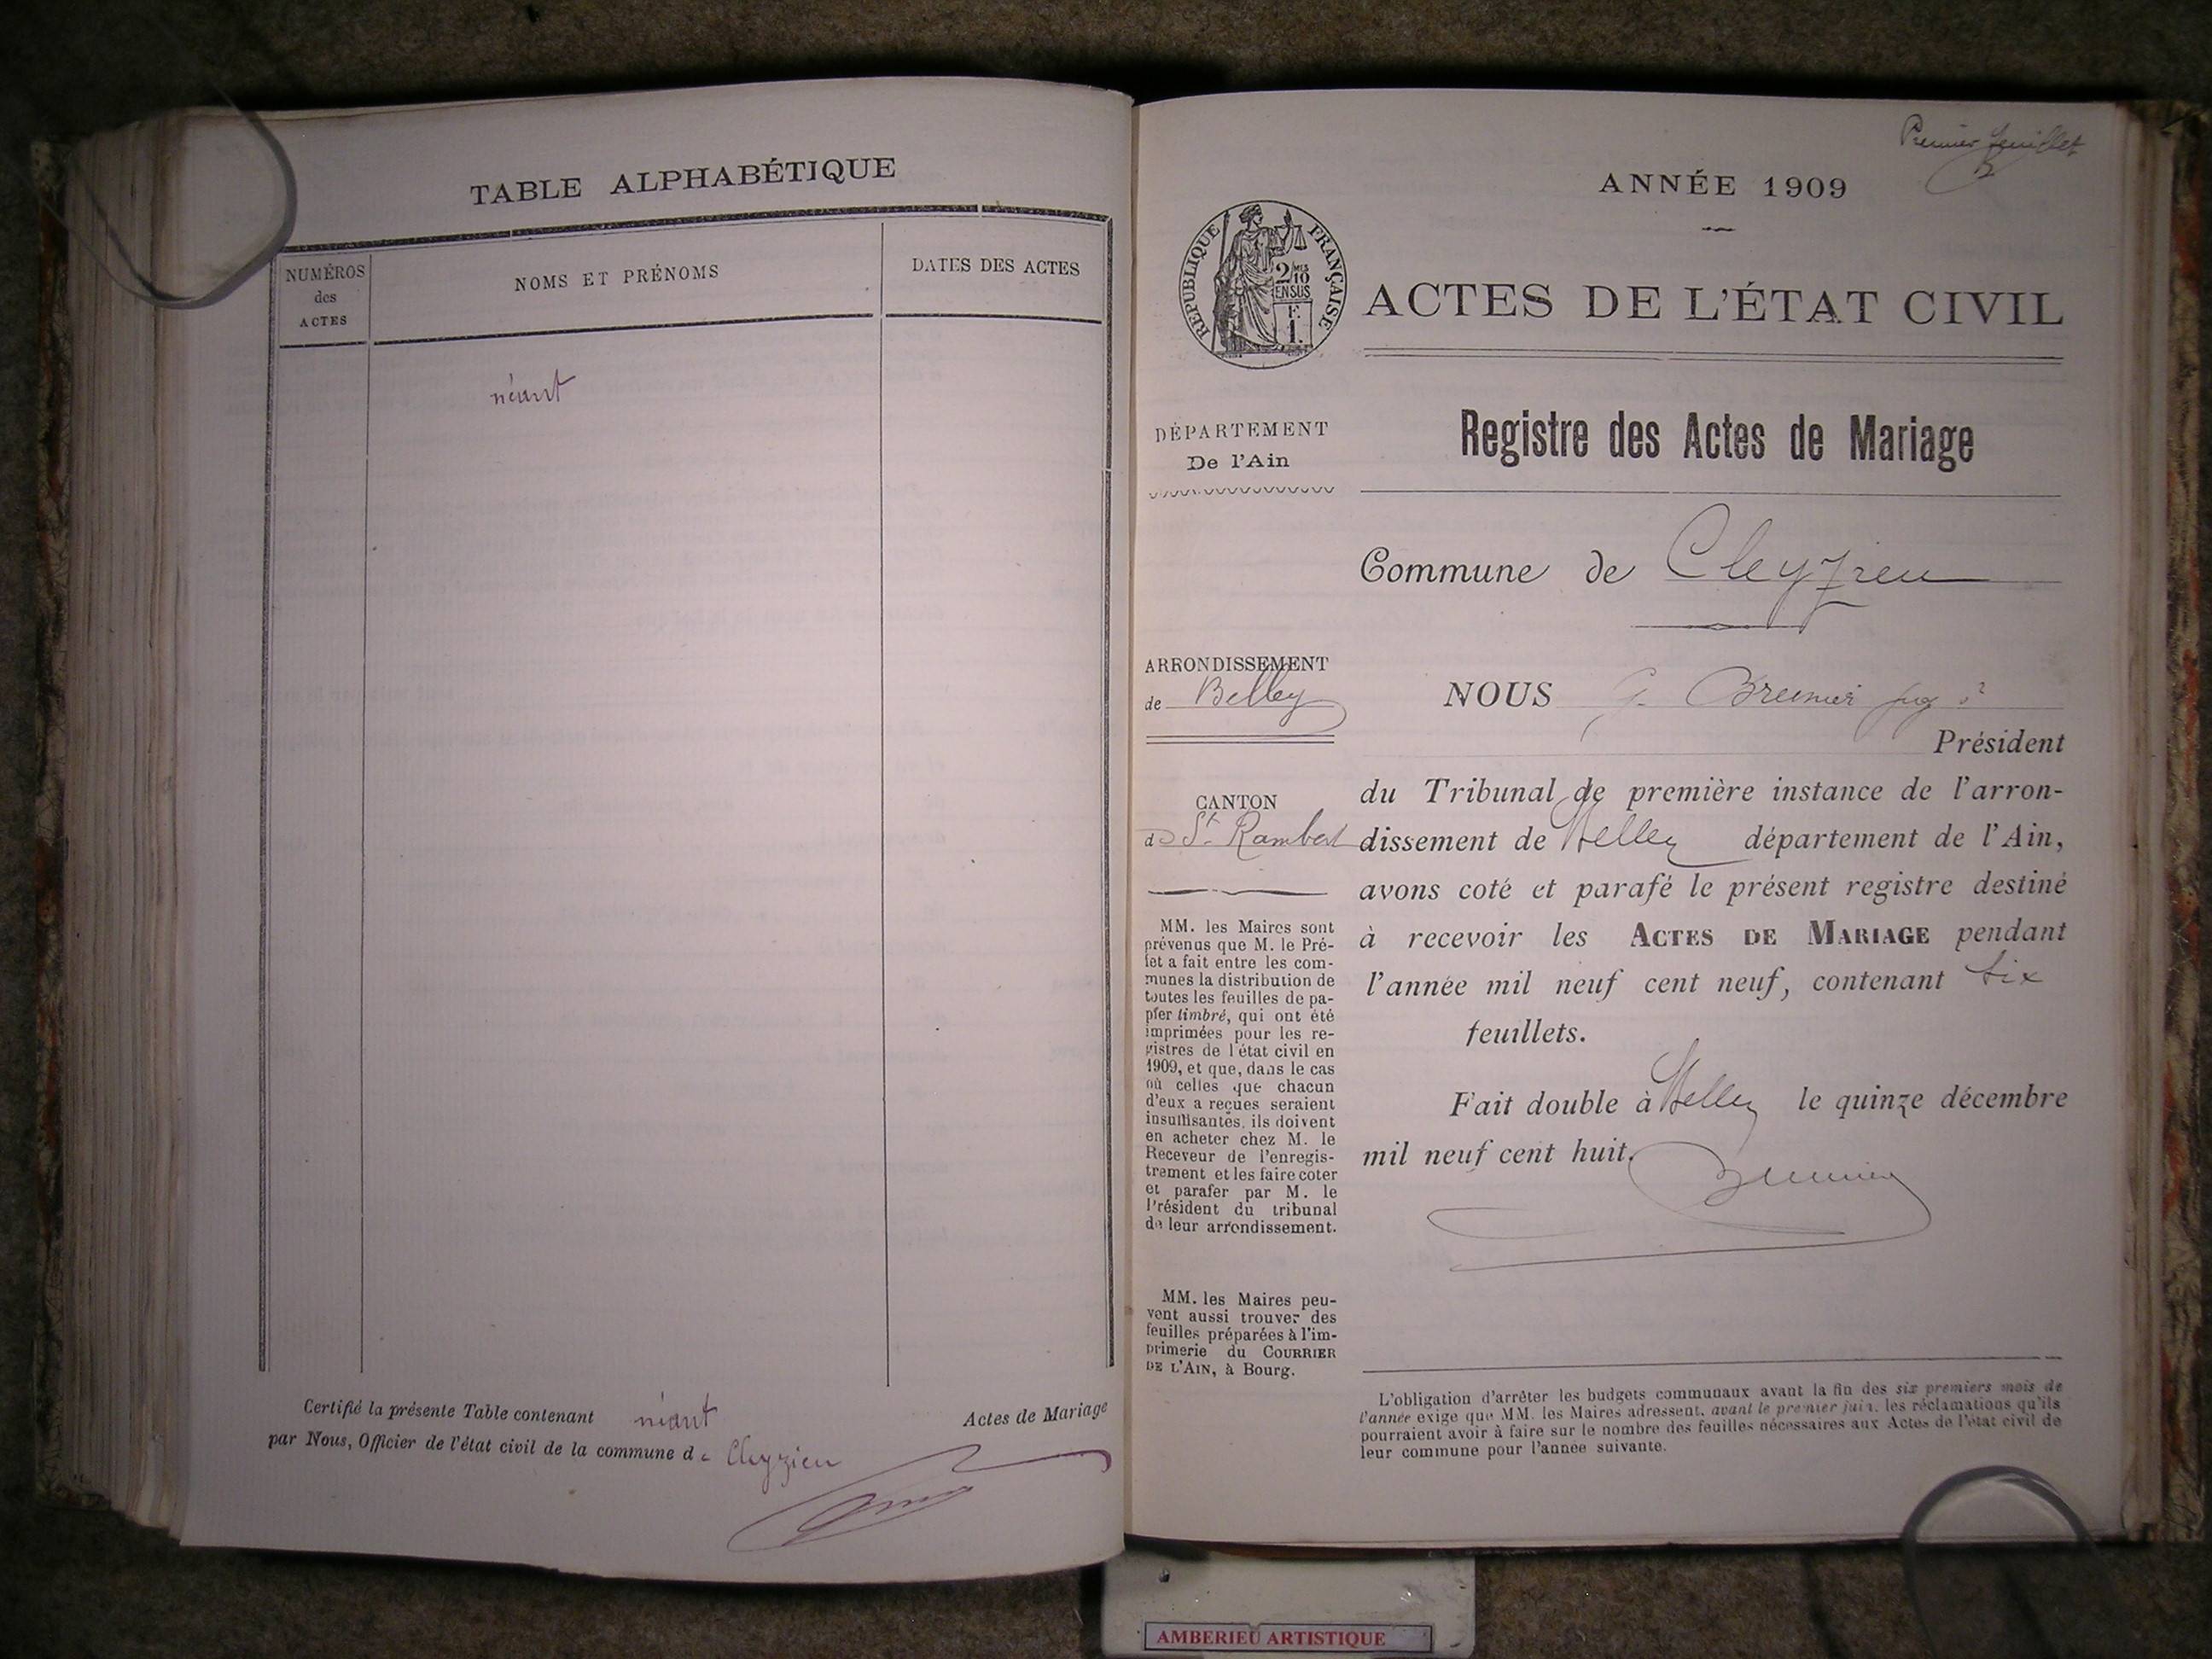 TABLE ALPHABÉTIQUE
NUMÉROS
des
ACTES
NOMS ET PRÉNOMS
DATES DES ACTES
néant
Certifié la présente Table contenant néant Actes de Mariage
par Nous, Officier de l'état civil de la commune de Cleyzieu
Premier feuillet
ANNÉE 1909
RÉPUBLIQUE FRANÇAISE
2/10 MES
EN SUS
F.
1.
ACTES DE L'ÉTAT CIVIL
DÉPARTEMENT
De l'Ain
Registre des Actes de Mariage
Commune de Cleyzieu
ARRONDISSEMENT
de Belley
NOUS G. Brunier
Président
du Tribunal de première instance de l'arron-
dissement de Belley département de l'Ain,
avons coté et parafé le présent registre destiné
à recevoir les ACTES DE MARIAGE pendant
l'année mil neuf cent neuf, contenant six
feuillets.
Fait double à Belley le quinze décembre
mil neuf cent huit.
Brunier
CANTON
de St. Rambert
MM. les Maires sont
prévenus que M. le Pré-
fet a fait entre les com-
munes la distribution de
toutes les feuilles de pa-
pier timbré, qui ont été
imprimées pour les re-
gistres de l'état civil en
1909, et que, dans le cas
où celles que chacun
d'eux a reçues seraient
insuffisantes, ils doivent
en acheter chez M. le
Receveur de l'enregis-
trement et les faire coter
et parafer par M. le
Président du tribunal
de leur arrondissement.
MM. les Maires peu-
vent aussi trouver des
feuilles préparées à l'im-
primerie du COURRIER
DE L'AIN, à Bourg.
L'obligation d'arrêter les budgets communaux avant la fin des six premiers mois de
l'année exige que MM. les Maires adressent, avant le premier juin, les réclamations qu'ils
pourraient avoir à faire sur le nombre des feuilles nécessaires aux Actes de l'état civil de
leur commune pour l'année suivante.
AMBERIEU ARTISTIQUE